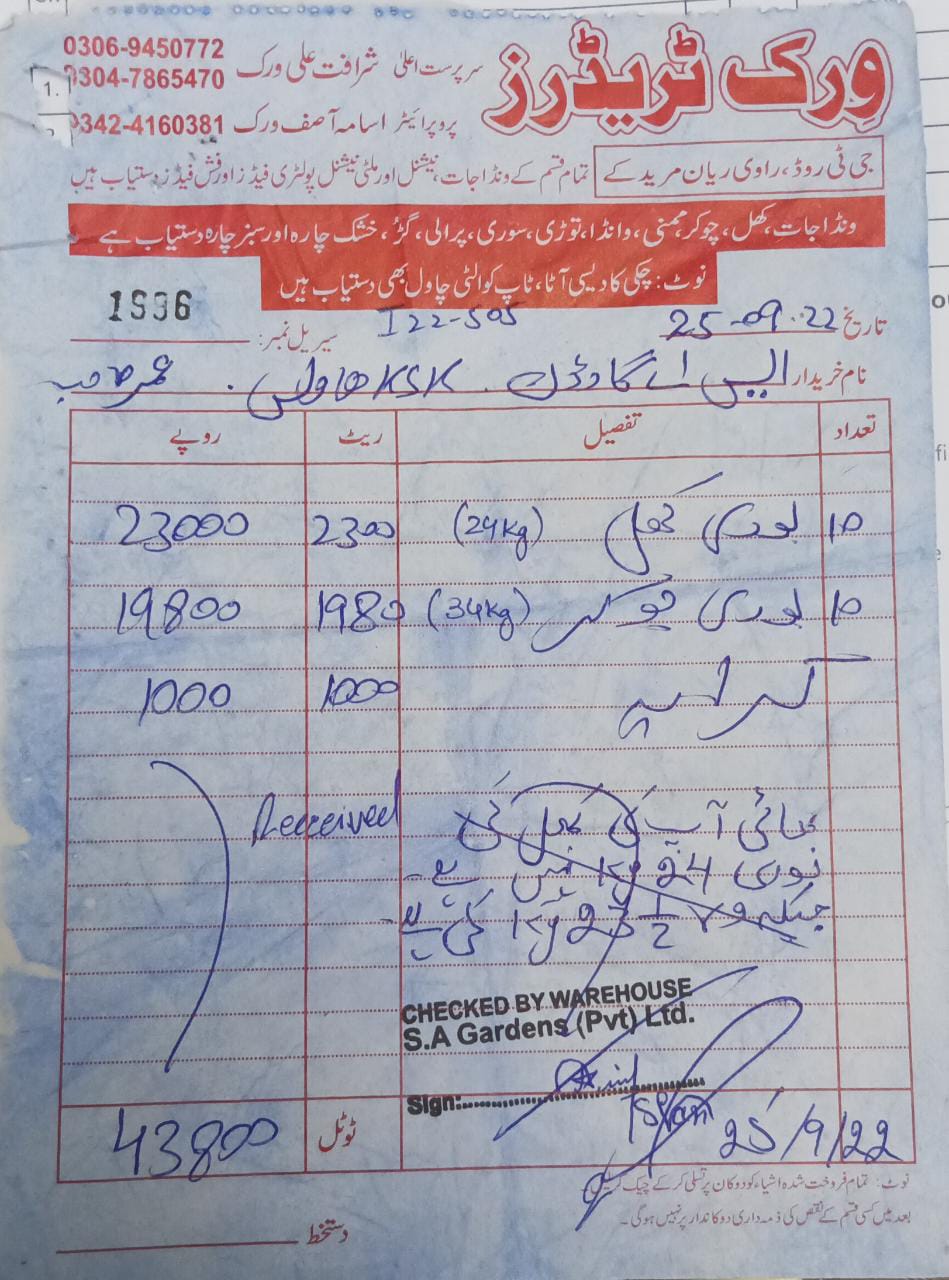 ورک ٹریڈرز
سرپرست اعلیٰ شرافت علی ورک 0306-9450772
0304-7865470
پروپرائیٹر اسامہ آصف ورک 0342-4160381
جی ٹی روڈ، راوی ریان مریدکے
تمام قسم کے ونڈا جات، نیشنل اور ملٹی نیشنل پولٹری فیڈز اور فش فیڈز دستیاب ہیں
ونڈا جات، کھل، چوکر، ممنی، وانڈا، توڑی، سوری، پرالی، گڑ، خشک چارہ اور سبز چارہ دستیاب ہے
نوٹ: چکی کا دیسی آٹا، ٹاپ کوالٹی چاول بھی دستیاب ہیں
تاریخ 25-09-22 I22-505 سیریل نمبر: 1996
نام خریدار ایس اے گارڈن KSK ہاوس . عمر صاحب
تعداد تفصیل ریٹ روپے
10 بوری کھل (24kg) 2300 23000
10 بوری چوکر (34kg) 1980 19800
کرایہ 1000 1000
Received
بھائی آپ کی کھل کی
بوری 24 kg نہیں ہے
جبکہ 23 1/2 kg کی ہے
CHECKED BY WAREHOUSE
S.A Gardens (Pvt) Ltd.
Sign:
25/9/22
ٹوٹل 43800
نوٹ: تمام فروخت شدہ اشیاء کو دوکان پر تسلی کر کے چیک کر لیں
بعد میں کسی قسم کے نقص کی ذمہ داری دوکاندار پر نہیں ہوگی۔
دستخط